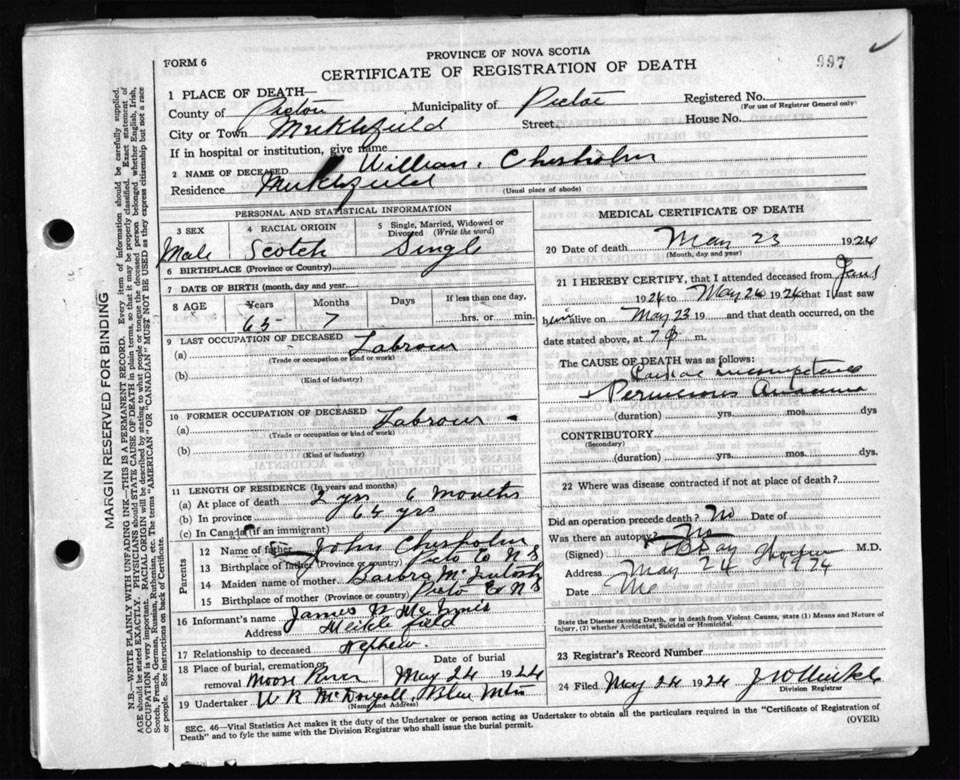 997
FORM 6
PROVINCE OF NOVA SCOTIA
CERTIFICATE OF REGISTRATION OF DEATH
1 PLACE OF DEATH—
County of Pictou Municipality of Registered No.
(For use of Registrar General only)
City or Town Street, House No.
If in hospital or institution, give name
2 NAME OF DECEASED William Chisholm
Residence (Usual place of abode)
PERSONAL AND STATISTICAL INFORMATION
3 SEX 4 RACIAL ORIGIN 5 Single, Married, Widowed or Divorced (Write the word)
Male Scotch Single
6 BIRTHPLACE (Province or Country)
7 DATE OF BIRTH (month, day and year)
8 AGE Years Months Days If less than one day,
65 7 hrs. or min.
9 LAST OCCUPATION OF DECEASED
(a) Labrour
(Trade or occupation or kind of work)
(b)
(Kind of industry)
10 FORMER OCCUPATION OF DECEASED
(a) Labrour
(Trade or occupation or kind of work)
(b)
(Kind of industry)
11 LENGTH OF RESIDENCE (In years and months)
(a) At place of death 2 yrs 6 months
(b) In province 65 yrs
(c) In Canada (if an immigrant)
Parents
12 Name of father John Chisholm
13 Birthplace of father Picto Co N S
14 Maiden name of mother McIntosh
15 Birthplace of mother (Province or country) Picto Co N S
16 Informant's name James
Address
17 Relationship to deceased Nephew
18 Place of burial, cremation or removal Moose River Date of burial May 24 1924
19 Undertaker W R McDougall, Blue Mtn
(Name and Address)
MEDICAL CERTIFICATE OF DEATH
20 Date of death May 23 1924
(Month, day and year)
21 I HEREBY CERTIFY, that I attended deceased from
1924 to May 24 1924 that I last saw
him alive on May 23 19 and that death occurred, on the
date stated above, at 7 m.
The CAUSE OF DEATH was as follows:
Cardiac incompetence
Pernicious
(duration) yrs. mos. dys
CONTRIBUTORY
(Secondary)
(duration) yrs. mos. dys.
22 Where was disease contracted if not at place of death?
Did an operation precede death? No Date of
Was there an autopsy? No
(Signed) M.D.
Address May 24 1924
Date
State the Disease causing Death, or in death from Violent Causes, state (1) Means and Nature of
Injury, (2) whether Accidental, Suicidal or Homicidal.
23 Registrar's Record Number
24 Filed May 24 1924
Division Registrar
SEC. 46—Vital Statistics Act makes it the duty of the Undertaker or person acting as Undertaker to obtain all the particulars required in the "Certificate of Registration of
Death" and to fyle the same with the Division Registrar who shall issue the burial permit.
(OVER)
MARGIN RESERVED FOR BINDING
N.B.—WRITE PLAINLY WITH UNFADING INK—THIS IS A PERMANENT RECORD. Every item of information should be carefully supplied.
AGE should be stated EXACTLY. PHYSICIANS should STATE CAUSE OF DEATH in plain terms, so that it may be properly classified. Exact statement of
OCCUPATION is very important. RACIAL ORIGIN will be described by stating to what people or tongue the deceased person belonged whether English, Irish,
Scotch, French, German, Russian, Ruthenian, etc. The terms "AMERICAN" OR "CANADIAN" MUST NOT BE USED as they express citizenship but not a race
or people. See instructions on back of Certificate.